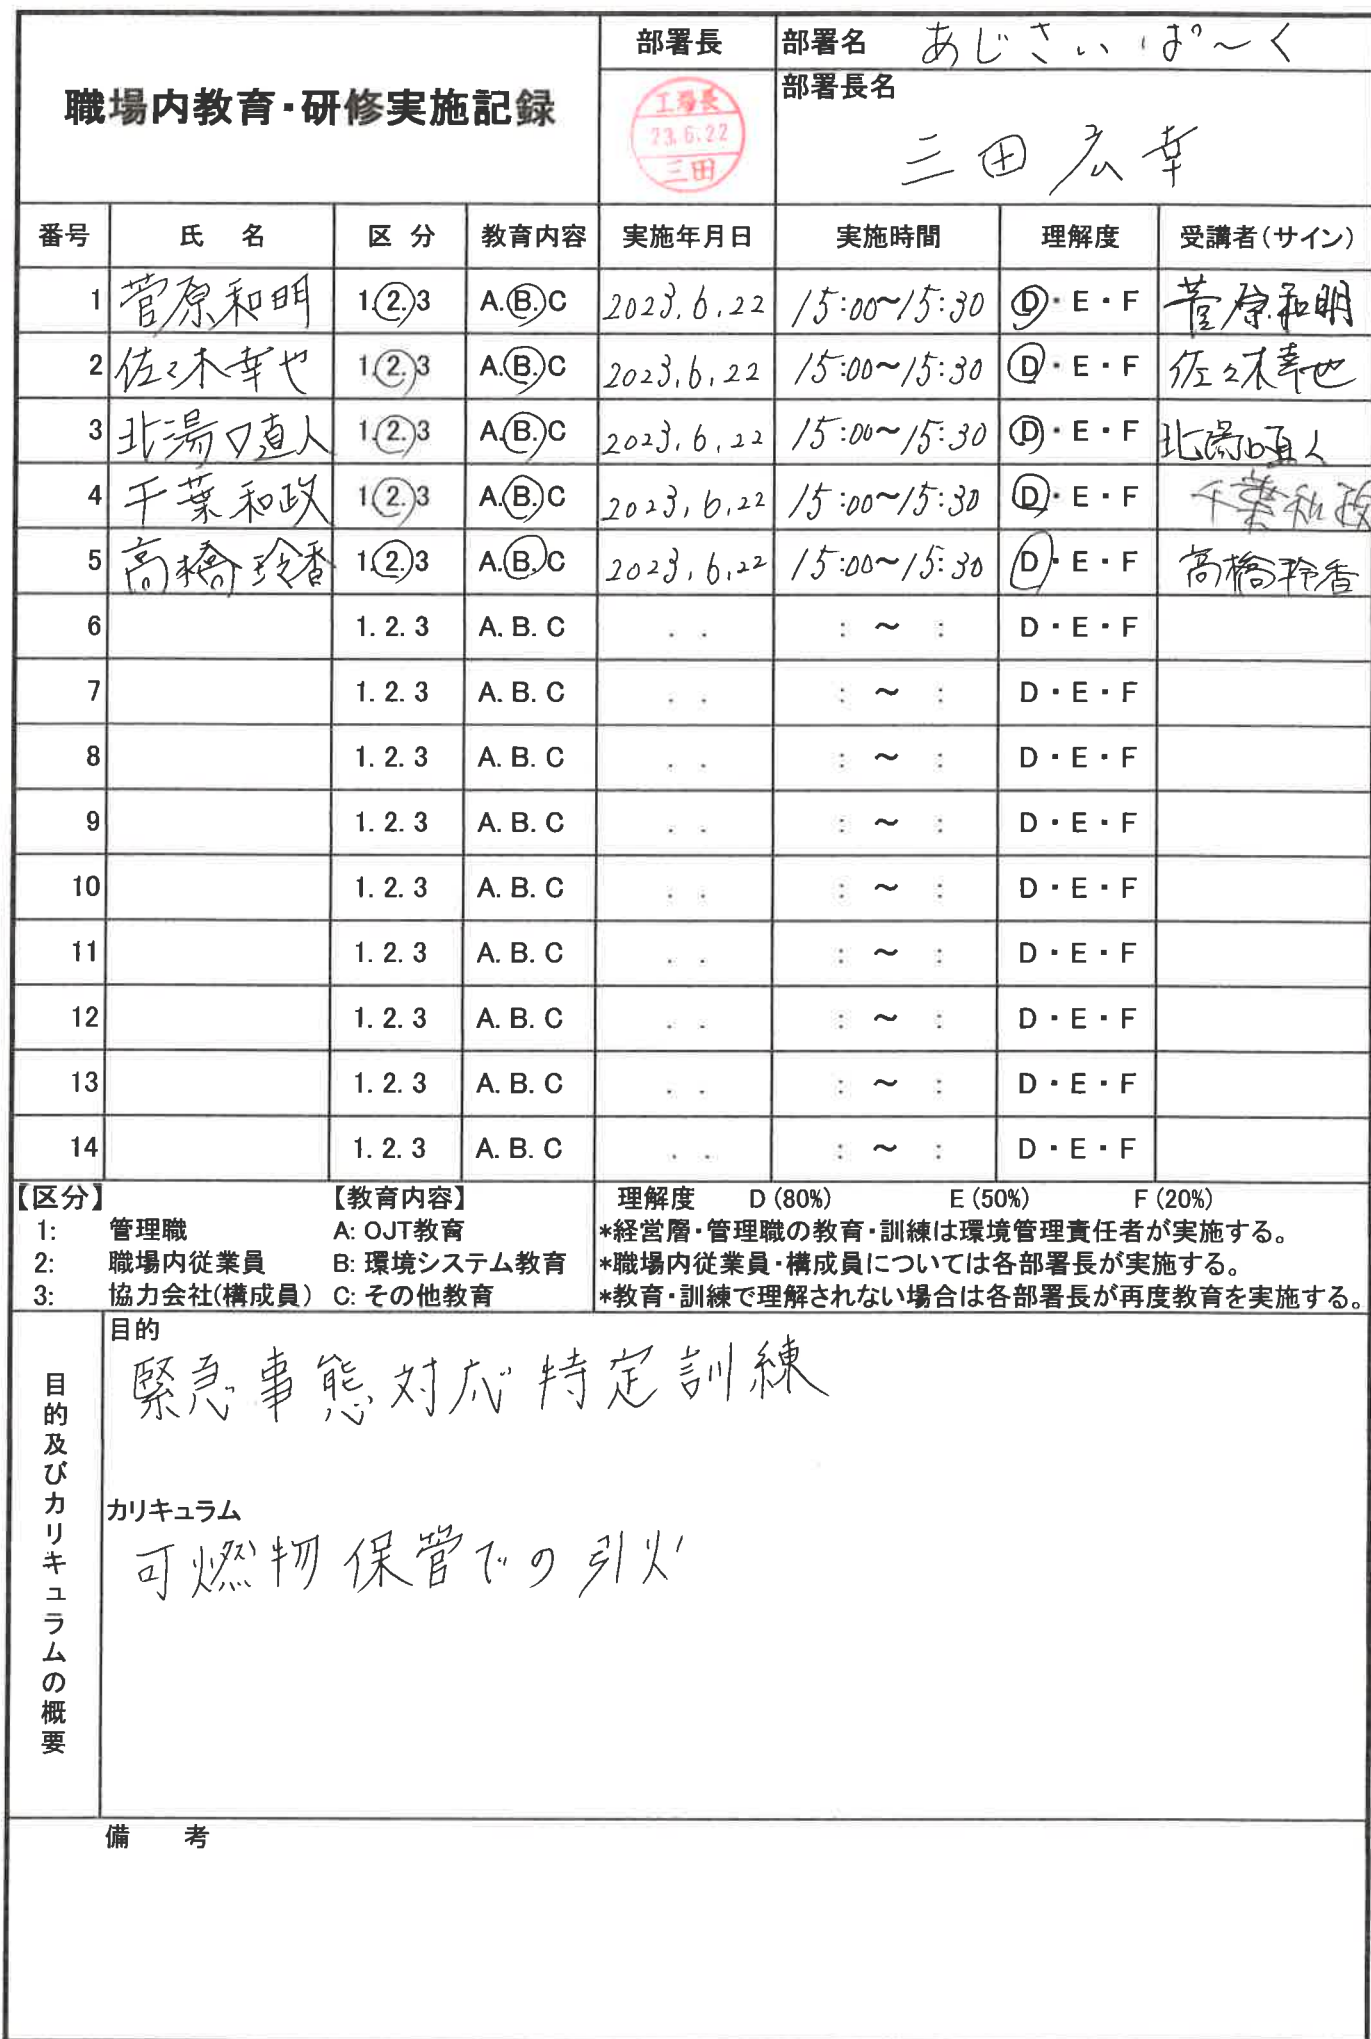 職場内教育・研修実施記録
部署長
工場長
23.6.22
三田
部署名 あじさいぱ～く
部署長名
三田広幸
番号 氏 名 区 分 教育内容 実施年月日 実施時間 理解度 受講者(サイン)
1 菅原和明 1.2.3 A.B.C 2023.6.22 15:00～15:30 D・E・F 菅原和明
2 佐々木幸也 1.2.3 A.B.C 2023.6.22 15:00～15:30 D・E・F 佐々木幸也
3 北湯口直人 1.2.3 A.B.C 2023.6.22 15:00～15:30 D・E・F 北湯口直人
4 千葉和政 1.2.3 A.B.C 2023.6.22 15:00～15:30 D・E・F 千葉和政
5 高橋玲香 1.2.3 A.B.C 2023.6.22 15:00～15:30 D・E・F 高橋玲香
6 1.2.3 A.B.C . . : ～ : D・E・F
7 1.2.3 A.B.C . . : ～ : D・E・F
8 1.2.3 A.B.C . . : ～ : D・E・F
9 1.2.3 A.B.C . . : ～ : D・E・F
10 1.2.3 A.B.C . . : ～ : D・E・F
11 1.2.3 A.B.C . . : ～ : D・E・F
12 1.2.3 A.B.C . . : ～ : D・E・F
13 1.2.3 A.B.C . . : ～ : D・E・F
14 1.2.3 A.B.C . . : ～ : D・E・F
【区分】 【教育内容】 理解度 D(80%) E(50%) F(20%)
1: 管理職 A: OJT教育 *経営層・管理職の教育・訓練は環境管理責任者が実施する。
2: 職場内従業員 B: 環境システム教育 *職場内従業員・構成員については各部署長が実施する。
3: 協力会社(構成員) C: その他教育 *教育・訓練で理解されない場合は各部署長が再度教育を実施する。
目的及びカリキュラムの概要
目的
緊急事態対応特定訓練
カリキュラム
可燃物保管での引火
備 考